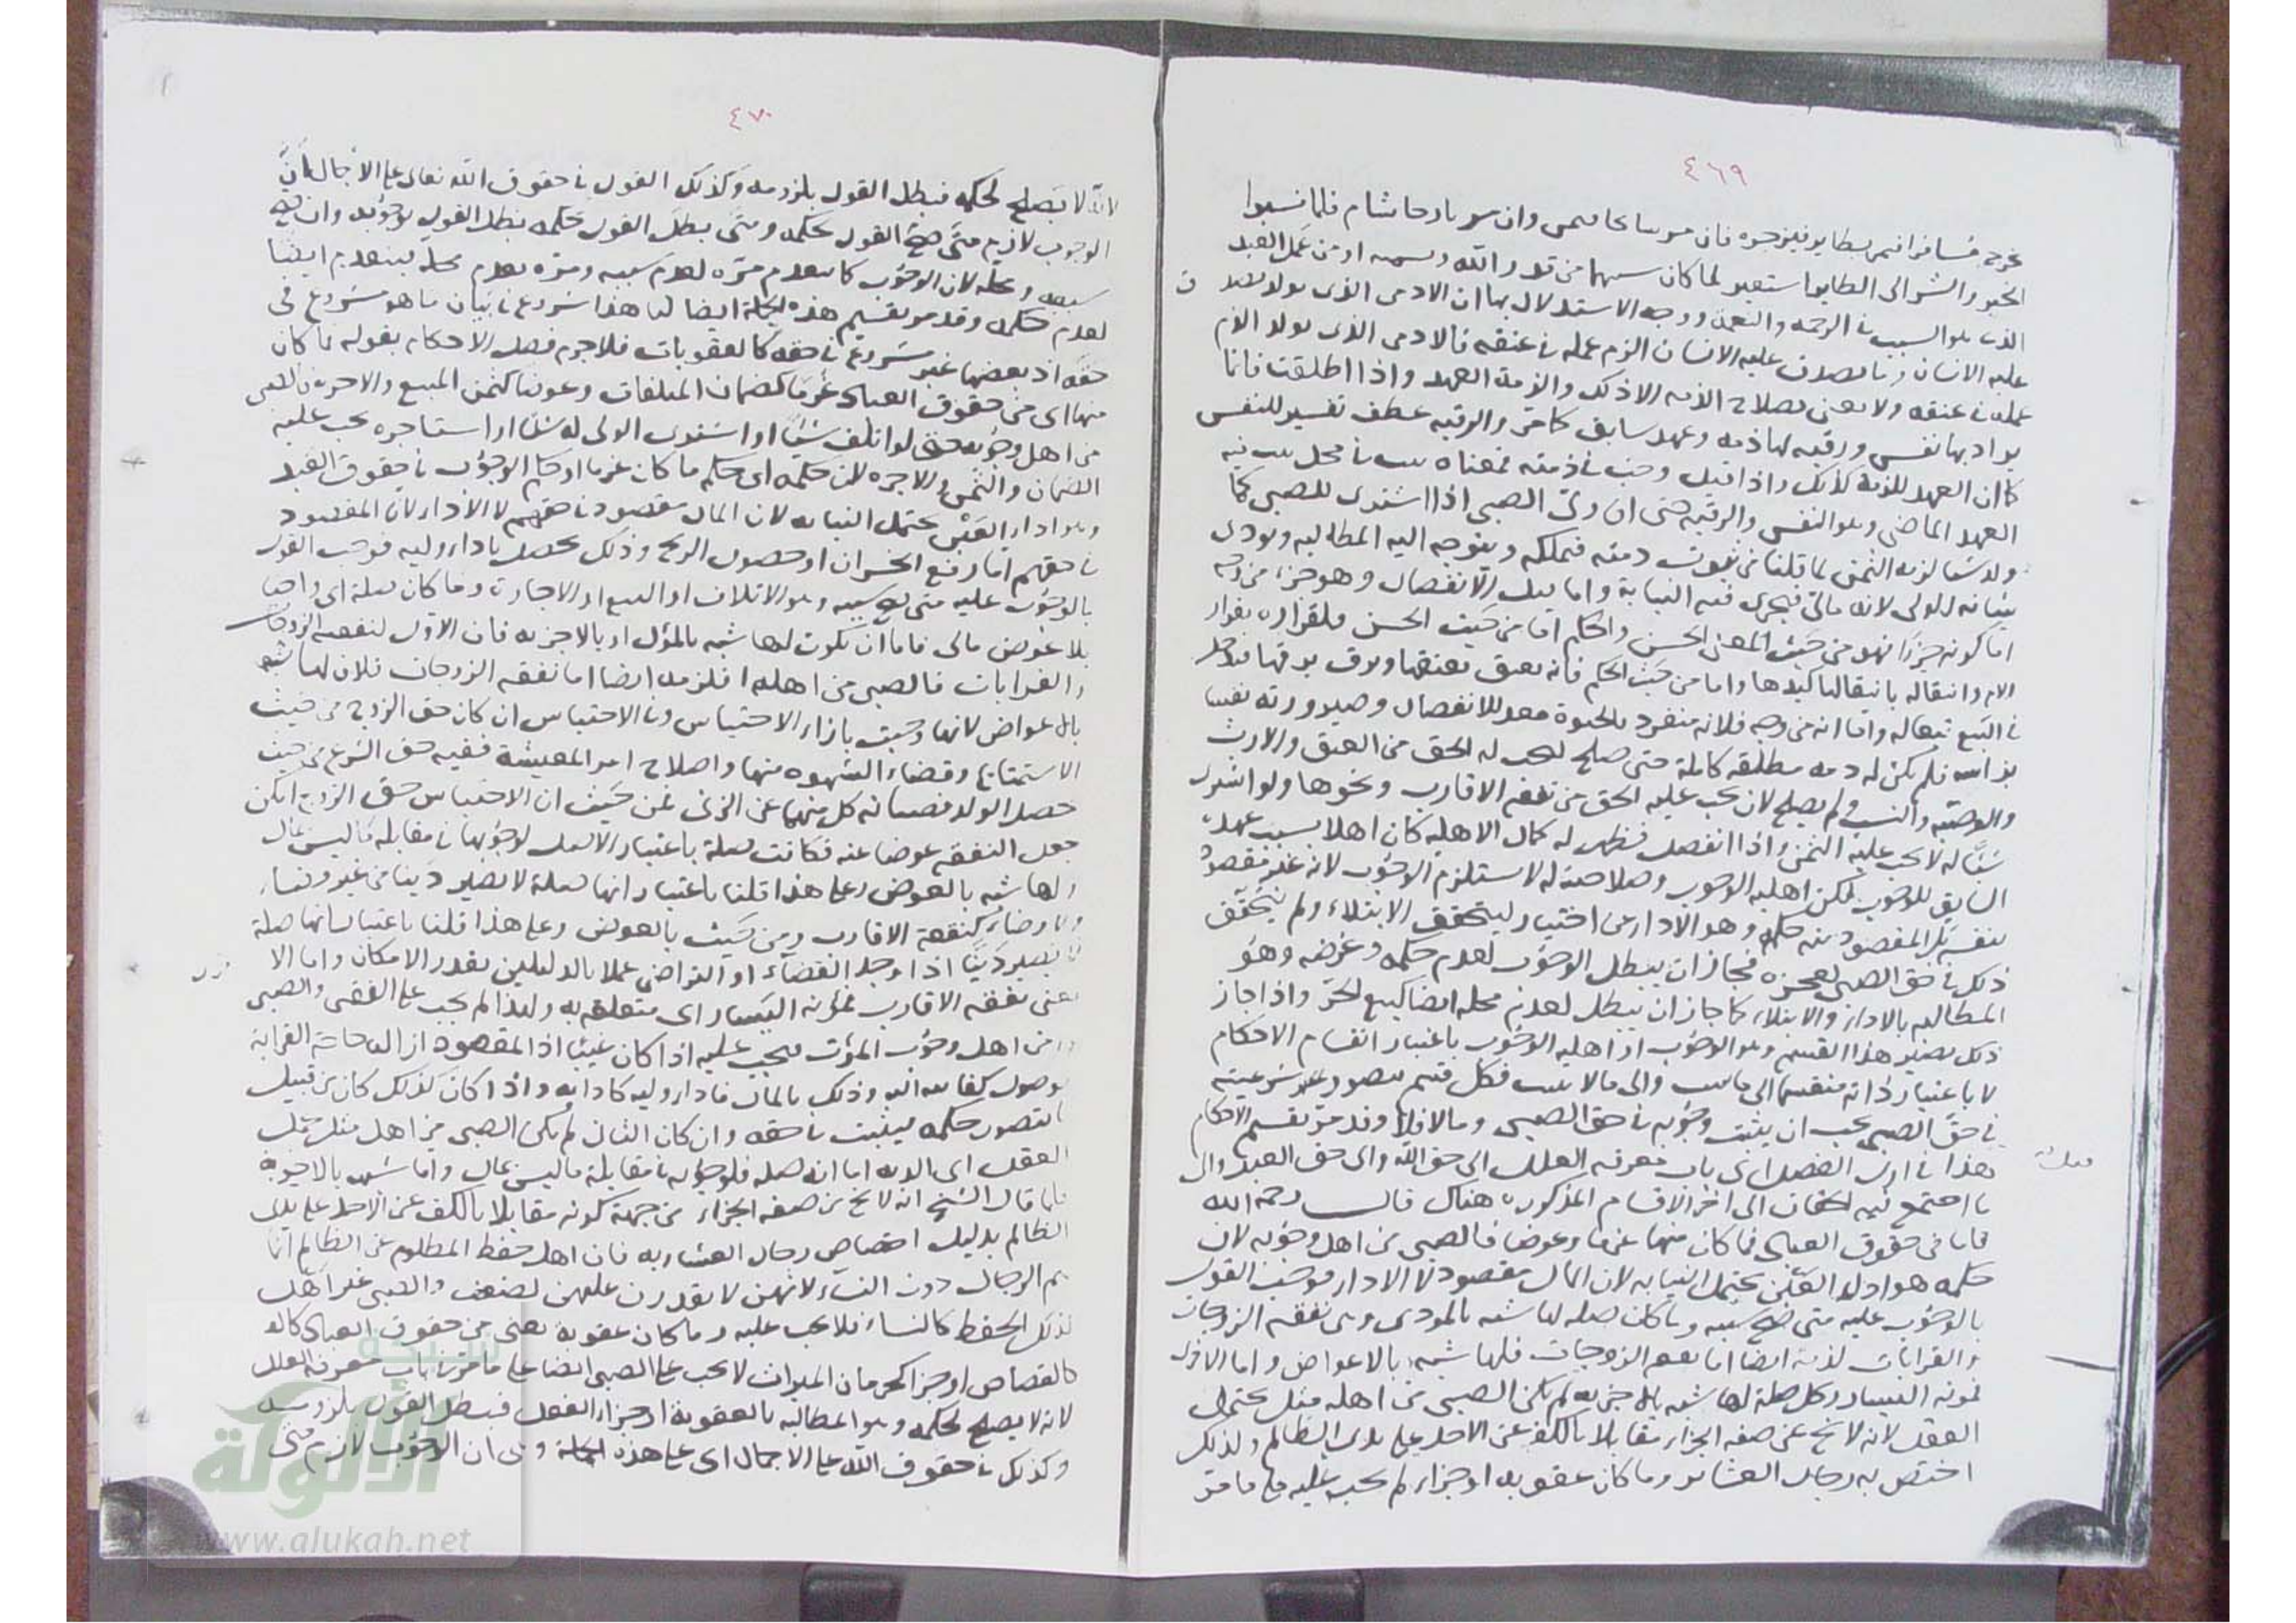 ٤٦٩
يخرج مسافرا فيمر بطاير فيزجره فان مر سانحا تيمن وان مر بارحا تشام فلما نسبوا
الخير والشر الى الطاير استعير لما كان سببهما من قدر الله وقسمه او من عمل العبد
الذى هو السبب فى الرحمة والنعمة ووجه الاستدلال بها ان الادمى الذى يولد
عليه الانسان الزم عمله فى عنقه فالادمى الذى يولد الزم
عمله فى عنقه ولا يعنى بصلاح الذمه الا ذلك والذمة العهد واذا اطلقت فانما
يراد بها نفس ورقبه لها ذمه وعهد سابق كما مر والرقبه عطف تفسير للنفس
كما ان العهد للذمة كذلك واذا قيل وجب فى ذمته فمعناه يثبت فى محل يثبت فيه
العهد الماضى وهو النفس والرقبه حتى ان ولى الصبى اذا اشترى للصبى كما
ولد شيا لزمه الثمن لما قلنا من ثبوت ذمته فيملكه ويتوجه اليه المطالبه ويودى
نيابة الولى لانه مالى فيجرى فيه النيابة واما قبل الانفصال وهو جزء من وجه
اما كونه جزءا فهو من حيث المعنى الحسى والحكم اما من حيث الحس فلقراره بقرار
الام وانتقاله بانتقالها كيدها واما من حيث الحكم فانه يعتق بعتقها ويرق برقها ويدخل
فى البيع تبعا له واما انه من وجه فلانه منفرد بالحيوة معد للانفصال وصيرورته نفسا
براسه فلم يكن له ذمه مطلقه كاملة حتى صلح ليجب له الحق من العتق والارث
والوصية والنسب ولم يصلح لان يجب عليه الحق من نفقه الاقارب ونحوها ولو اشترى
شيا له لا يجب عليه الثمن واذا انفصل فظهر له كمال الاهليه كان اهلا بسبب عهده
السابق للوجوب لكن اهليه الوجوب وصلاحيته له لا يستلزم الوجوب لانه غير مقصود
بنفسه بل المقصود منه حكمه وهو الاداء عن اختيار ليتحقق الابتلاء ولم يتحقق
ذلك فى حق الصبى لعجزه فجاز ان يبطل الوجوب لعدم حكمه وغرضه وهو
المطالبه بالاداء والابتلاء كما جاز ان يبطل لعدم محله ايضا كبيع الحر واذا جاز
ذلك يصير هذا القسم وهو الوجوب او اهليه الوجوب باعتبار انقسام الاحكام
لا باعتبار ذاته منقسما الى ما يثبت والى ما لا يثبت فكل قسم يتصور شرعيته
فى حق الصبى يجب ان يثبت وجوبه فى حق الصبى وما لا فلا وقد مر تقسيم الاحكام
هذا فى اول الفصل اى باب معرفه العلل الى حق الله والى حق العبد والى
ما اجتمع فيه الحقان الى اخر الاقسام المذكوره هناك قال رحمه الله
فاما فى حقوق العباد فما كان منها غرما وعوضا فالصبى من اهل وجوبه لان
حكمه هو اداء العين يحتمل النيابه لان المال مقصود لا الاداء فوجب القول
بالوجوب عليه متى صح سببه وما كان صله لها شبه بالمودى وهى نفقه الزوجات
والقرابات لزمه ايضا اما نفقه الزوجات فلها شبه بالاعواض واما الاخرى
لمونه اليسار وكل صلة لها شبه بالاجزيه لم يكن الصبى من اهله مثل تحمل
العقل لانه لا يخ عن صفه الجزاء مقابلا بالكف عن الاخذ على يدى الظالم ولذلك
اختص به رجال العشاير وما كان عقوبه او جزاء لم يجب عليه على ما مر
٤٧٠
لانه لا يصلح لحكمه فبطل القول بلزومه وكذلك القول فى حقوق الله تعالى على الاجمال ان
الوجوب لازم متى صح القول بحكمه ومتى بطل القول بحكمه بطل القول بوجوبه وان صح
سببه ومحله لان الوجوب كما ينعدم مره لعدم سببه ومره لعدم محله ينعدم ايضا
لعدم حكمه وقد مر تقسيم هذه الجملة ايضا هذا شروع فى بيان ما هو مشروع فى
حقه اذ بعضها غير مشروع فى حقه كالعقوبات فلا جرم فصل الاحكام بقوله فما كان
منها اى من حقوق العباد غرما كضمان المتلفات وعوضا كثمن المبيع والاجره فالصبى
من اهل وجوبه حتى لو اتلف شيا او اشترى الولى له شيا او استاجره يجب عليه
الضمان والثمن والاجره لان حكمه اى حكم ما كان غرما او حكم الوجوب فى حقوق العبد
وهو اداء العين يحتمل النيابه لان المال مقصود فى حقهم لا الاداء لان المقصود
فى حقهم اما رفع الخسران او حصول الربح وذلك يحصل باداء وليه فوجب القول
بالوجوب عليه متى صح سببه وهو الاتلاف او البيع او الاجارة وما كان صلة اى واجبا
بلا عوض مالى فاما ان يكون لها شبه بالمؤن او بالاجزيه فان الاول كنفقه الزوجات
والقرابات فالصبى من اهلها فلزمه ايضا اما نفقه الزوجات فلان لها شبه
بالاعواض لانها وجبت بازاء الاحتباس وفى الاحتباس ان كان حق الزوج من حيث
الاستمتاع وقضاء الشهوه منها واصلاح امر المعيشة ففيه حق الشرع من حيث
حصل الولد فصيانه كل منهما عن الزنى فمن حيث ان الاحتباس حق الزوج امكن
جعل النفقه عوضا عنه فكانت صلة باعتبار الاصل لوجوبها فى مقابله ما ليس بمال
ولها شبه بالعوض وعلى هذا قلنا باعتبار انها صلة لا يصير دينا من غير قضاء
ولا رضاء كنفقة الاقارب ومن حيث بالعوض وعلى هذا قلنا باعتبار انها صلة
يصير دينا اذا وجد القضاء او التراضى عملا بالدليلين بقدر الامكان واما الا
يعنى نفقه الاقارب لمؤنه اليسار اى متعلقه به ولهذا لم يجب على الفقير والصبى
من اهل وجوب المؤن فيجب عليه اذا كان غنيا اذ المقصود ازالة حاجة القرابة
بوصول كفايته اليه وذلك بالمال فاداء وليه كادائه واذا كان كذلك كان من قبيل
المتصور حكمه فيثبت فى حقه وان كان الثانى لم يكن الصبى من اهله مثل تحمل
العقل اى الدية اما انه صله فلوجوبه فى مقابلة ما ليس بمال واما شبهه بالاجزية
فلما قال الشيخ انه لا يخ عن صفه الجزاء من جهة كونه مقابلا بالكف عن الاخذ على يدى
الظالم بدليل اختصاص رجال العشاير به فان اهل حفظ المظلوم عن الظالم انما
هم الرجال دون النساء لانهن لا يقدرن عليه لضعف والصبى غير اهل
لذلك الحفظ كالنساء فلا يجب عليه وما كان عقوبة يعنى من حقوق العباد
كالقصاص او جزاء كحرمان الميراث لا يجب على الصبى ايضا على ما مر فى باب معرفة العلل
لانه لا يصلح لحكمه وهو المطالبه بالعقوبة او جزاء الفعل فبطل القول بلزومه
وكذلك فى حقوق الله على الاجمال اى على هذه الجملة وهى ان الوجوب لازم متى
شبكة
الألوكة
www.alukah.net